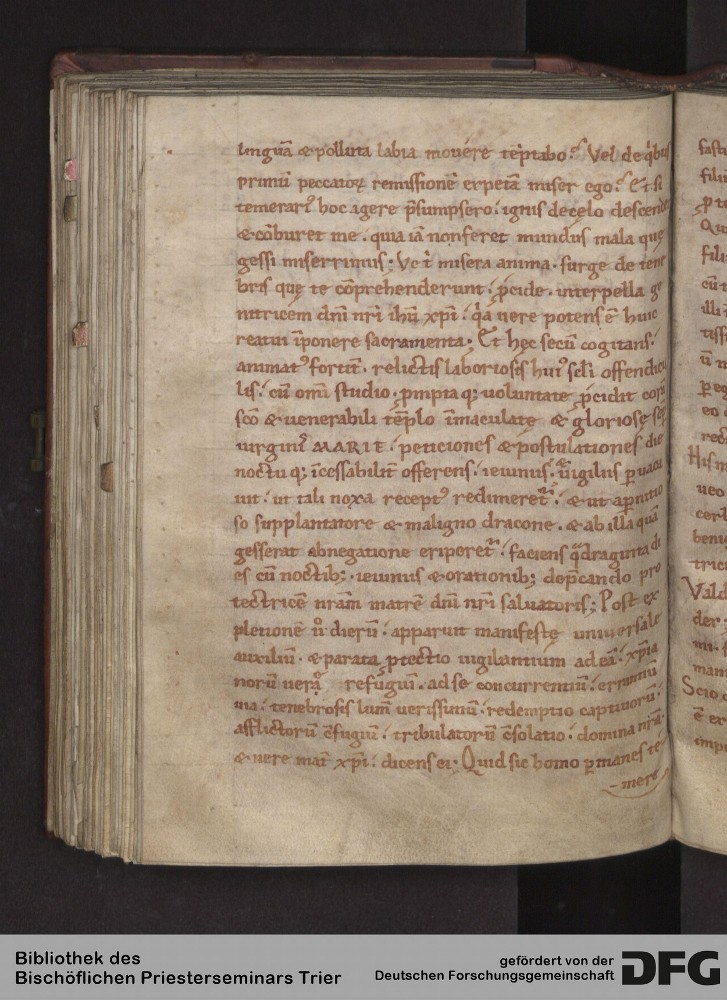 linguā & polluta labia mouere tēptabo? Vel de qͥbus
primū peccatoꝝ remissionē expetā miser ego? Et si
temerariꝰ hoc agere p̄sumpsero: ignis de celo descend&
& cōburet me: quia iā non feret mundus mala quę
gessi miserrimus; Vē t̄ misera anima. surge de tene
bris quę te cōprehenderunt: p̄cide. interpella ge
nitricem dn̄i nr̄i ihū xp̄i: qͥa uere potens ē huic
reatui īponere sacramenta; Et hęc secū cogitans:
animatꝰ fortit̄. relictis laboriosis huiꝰ scl̄i offendicu
lis: cū omī studio. p̄mptaq; uoluntate p̄cidit corā
sc̄o & uenerabili tēplo īmaculatę & gloriosę sēp
uirginis MARIE: peticiones & postulationes die
noctuq; īcessabilit̄ offerens. ieiunus. & uigiliis ꝑuaca
uit: ut tali noxa receptꝰ redimeret: & ut a pernitio
so supplantatore & maligno dracone. & ab illa quā
gesserat abnegatione eriperet: faciens qͣdraginta di
es cū noctibꝫ. ieiuniis & orationibꝫ dep̄cando pro
tectricē nrām matrē dn̄i nr̄i saluatoris; Post ex
pletionē ū dierū. apparuit manifestę uniuersale
auxiliū. & parata p̄tectio uigilantium ad eā: xp̄ia
norū uerū refugiū. ad se concurrentiū: errantiū
uia: tenebrosis lum̄ uerissimū: redemptio captiuorū:
afflictorū c̄fugiū: tribulatorū c̄solatio. domina nr̄a:
& uere mat̄ xp̄i: dicens ei; Quid sic homo ꝑmanes te
mere
Bibliothek des
Bischöflichen Priesterseminars Trier
gefördert von der
Deutschen Forschungsgemeinschaft
DFG